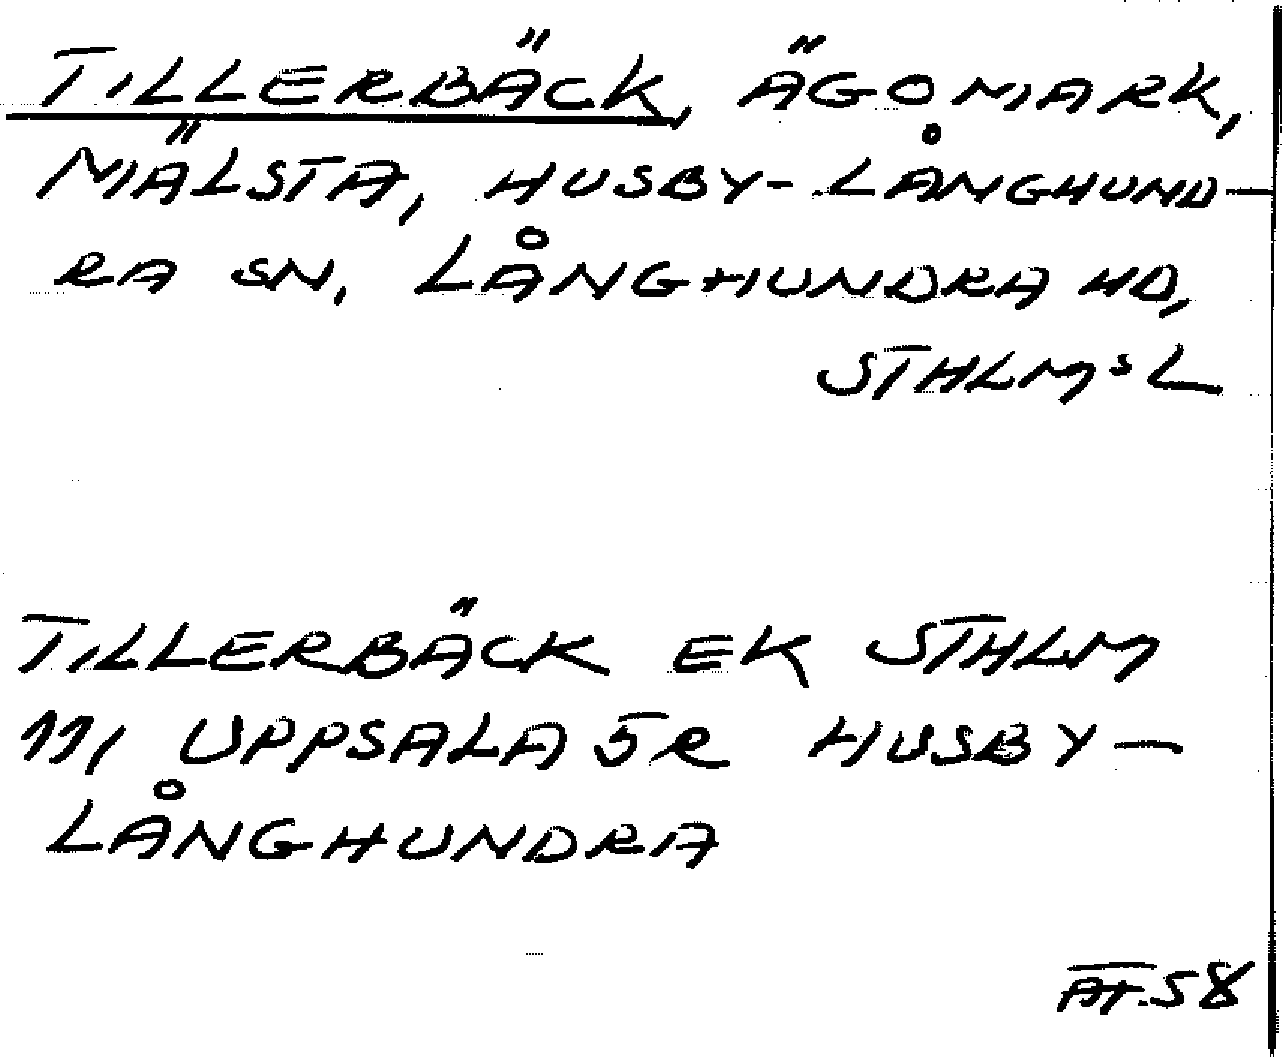 TILLERBÄCK, ÄGOMARK,
MÄLSTA, HUSBY-LÅNGHUND-
RA SN, LÅNGHUNDRA HD,
STHLMS L
TILLERBÄCK EK STHLM
111 UPPSALA 5R HUSBY-
LÅNGHUNDRA
AT. 58